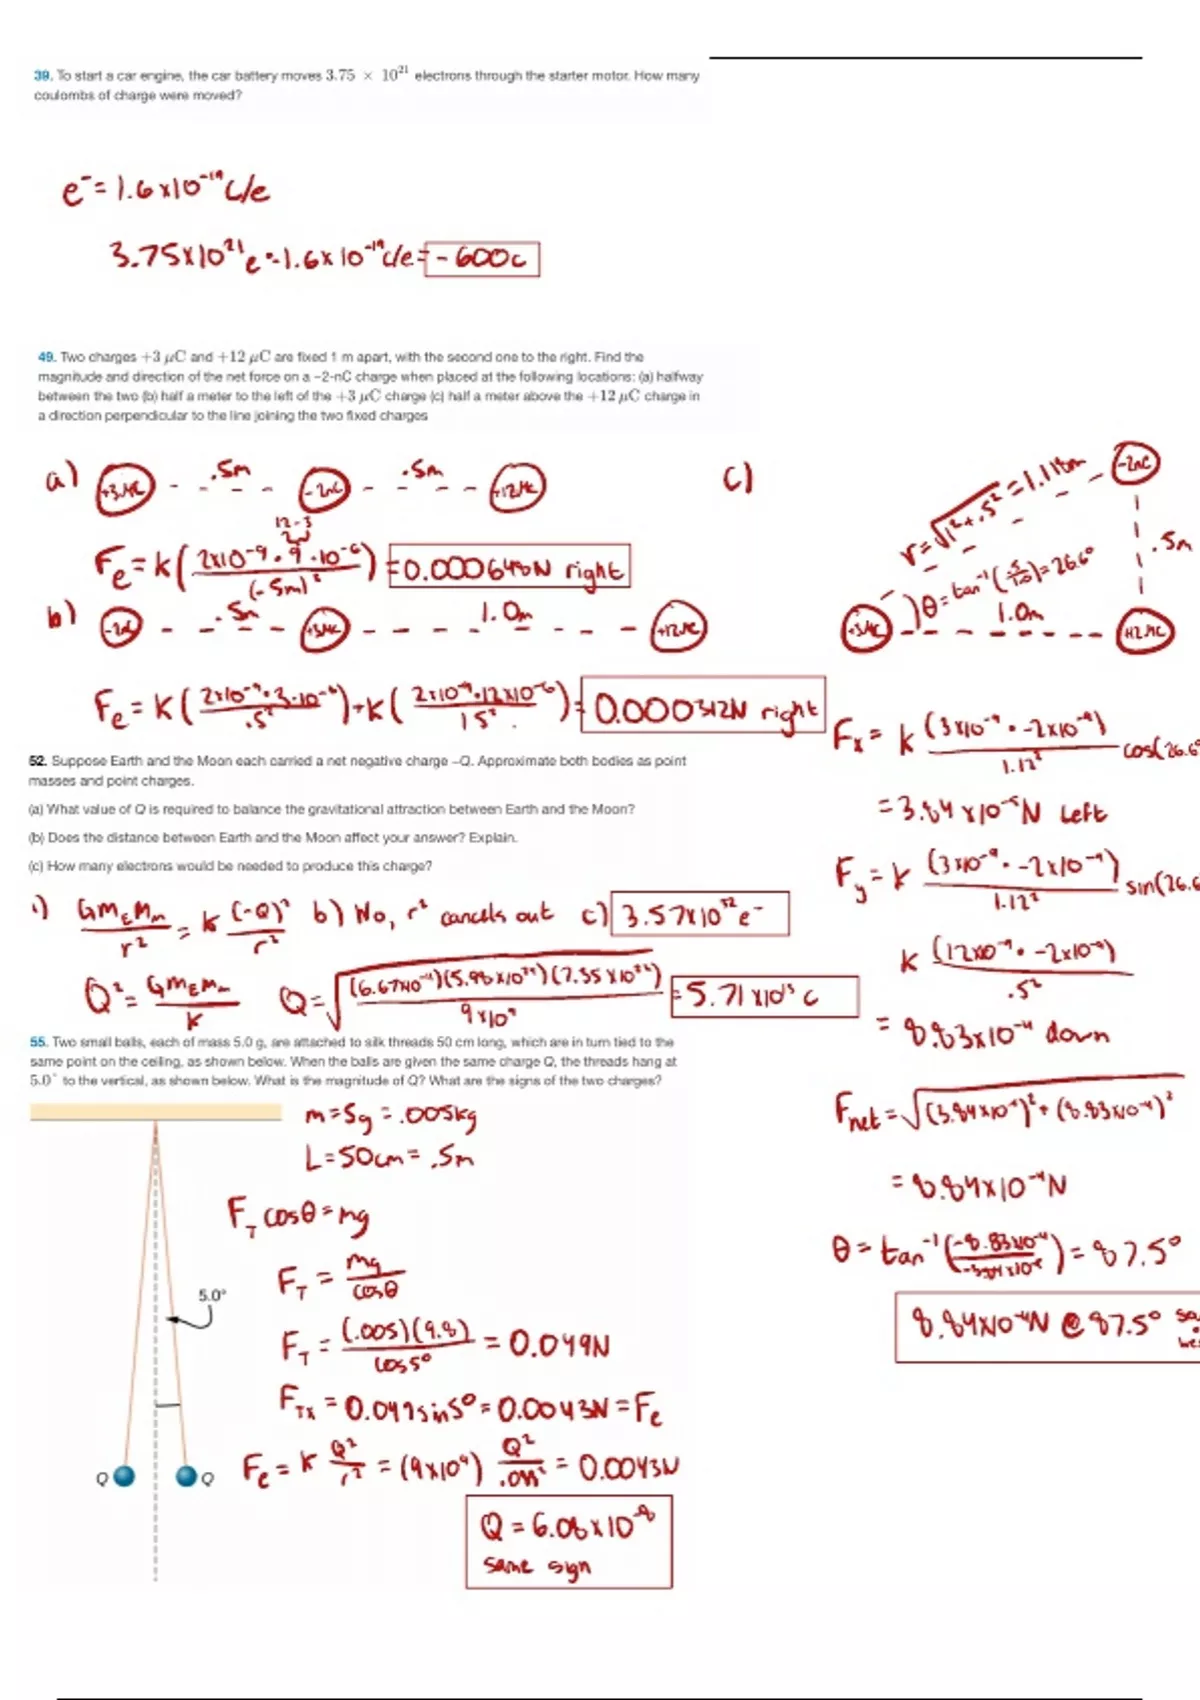 39. To start a car engine, the car battery moves 3.75 × 10²¹ electrons through the starter motor. How many
coulombs of charge were moved?
e⁻ = 1.6x10⁻¹⁹ c/e
3.75x10²¹ e · -1.6x10⁻¹⁹ c/e = -600c
49. Two charges +3 μC and +12 μC are fixed 1 m apart, with the second one to the right. Find the
magnitude and direction of the net force on a −2-nC charge when placed at the following locations: (a) halfway
between the two (b) half a meter to the left of the +3 μC charge (c) half a meter above the +12 μC charge in
a direction perpendicular to the line joining the two fixed charges
a) +3μC .5m -2nC .5m +12μC
12-3
Fe = k(2x10⁻⁹ · 9 · 10⁻⁶ / (.5m)²) = 0.000648N right
b) -2nC .5m +3μC 1.0m +12μC
Fe = k(2x10⁻⁹ · 3 · 10⁻⁶ / .5²) + k(2x10⁻⁹ · 12x10⁻⁶ / 1.5²) = 0.000312N right
c)
-2nC
r = √1² + .5² = 1.118m
.5m
θ = tan⁻¹(.5/1.0) = 26.6°
+3μC 1.0m +12μC
Fx = k (3x10⁻⁹ · -2x10⁻⁹) / 1.12² cos(26.6°
= 3.84x10⁻⁵N Left
Fy = k (3x10⁻⁹ · -2x10⁻⁹) / 1.12² sin(26.6
k (12x10⁻⁹ · -2x10⁻⁹) / .5²
= 8.83x10⁻⁴ down
Fnet = √(3.84x10⁻⁵)² + (8.83x10⁻⁴)²
= 8.84x10⁻⁴N
θ = tan⁻¹(-8.83x10⁻⁴ / -3.84x10⁻⁵) = 87.5°
8.84x10⁻⁴N @ 87.5°
52. Suppose Earth and the Moon each carried a net negative charge −Q. Approximate both bodies as point
masses and point charges.
(a) What value of Q is required to balance the gravitational attraction between Earth and the Moon?
(b) Does the distance between Earth and the Moon affect your answer? Explain.
(c) How many electrons would be needed to produce this charge?
GMEMm / r² = k (-Q)² / r² b) No, r² cancels out c) 3.57x10³² e⁻
Q² = GMEMm / k Q = √(6.67x10⁻¹¹)(5.98x10²⁴)(7.35x10²²) / 9x10⁹ = 5.71x10¹³ c
55. Two small balls, each of mass 5.0 g, are attached to silk threads 50 cm long, which are in turn tied to the
same point on the ceiling, as shown below. When the balls are given the same charge Q, the threads hang at
5.0° to the vertical, as shown below. What is the magnitude of Q? What are the signs of the two charges?
m = 5g = .005kg
L = 50cm = .5m
FT cosθ = mg
FT = mg / cosθ
5.0°
FT = (.005)(9.8) / cos5° = 0.049N
FTx = 0.049sin5° = 0.0043N = Fe
Q Q
Fe = k Q² / r² = (9x10⁹) Q² / = 0.0043N
Q = 6.08x10⁻⁸
same sign